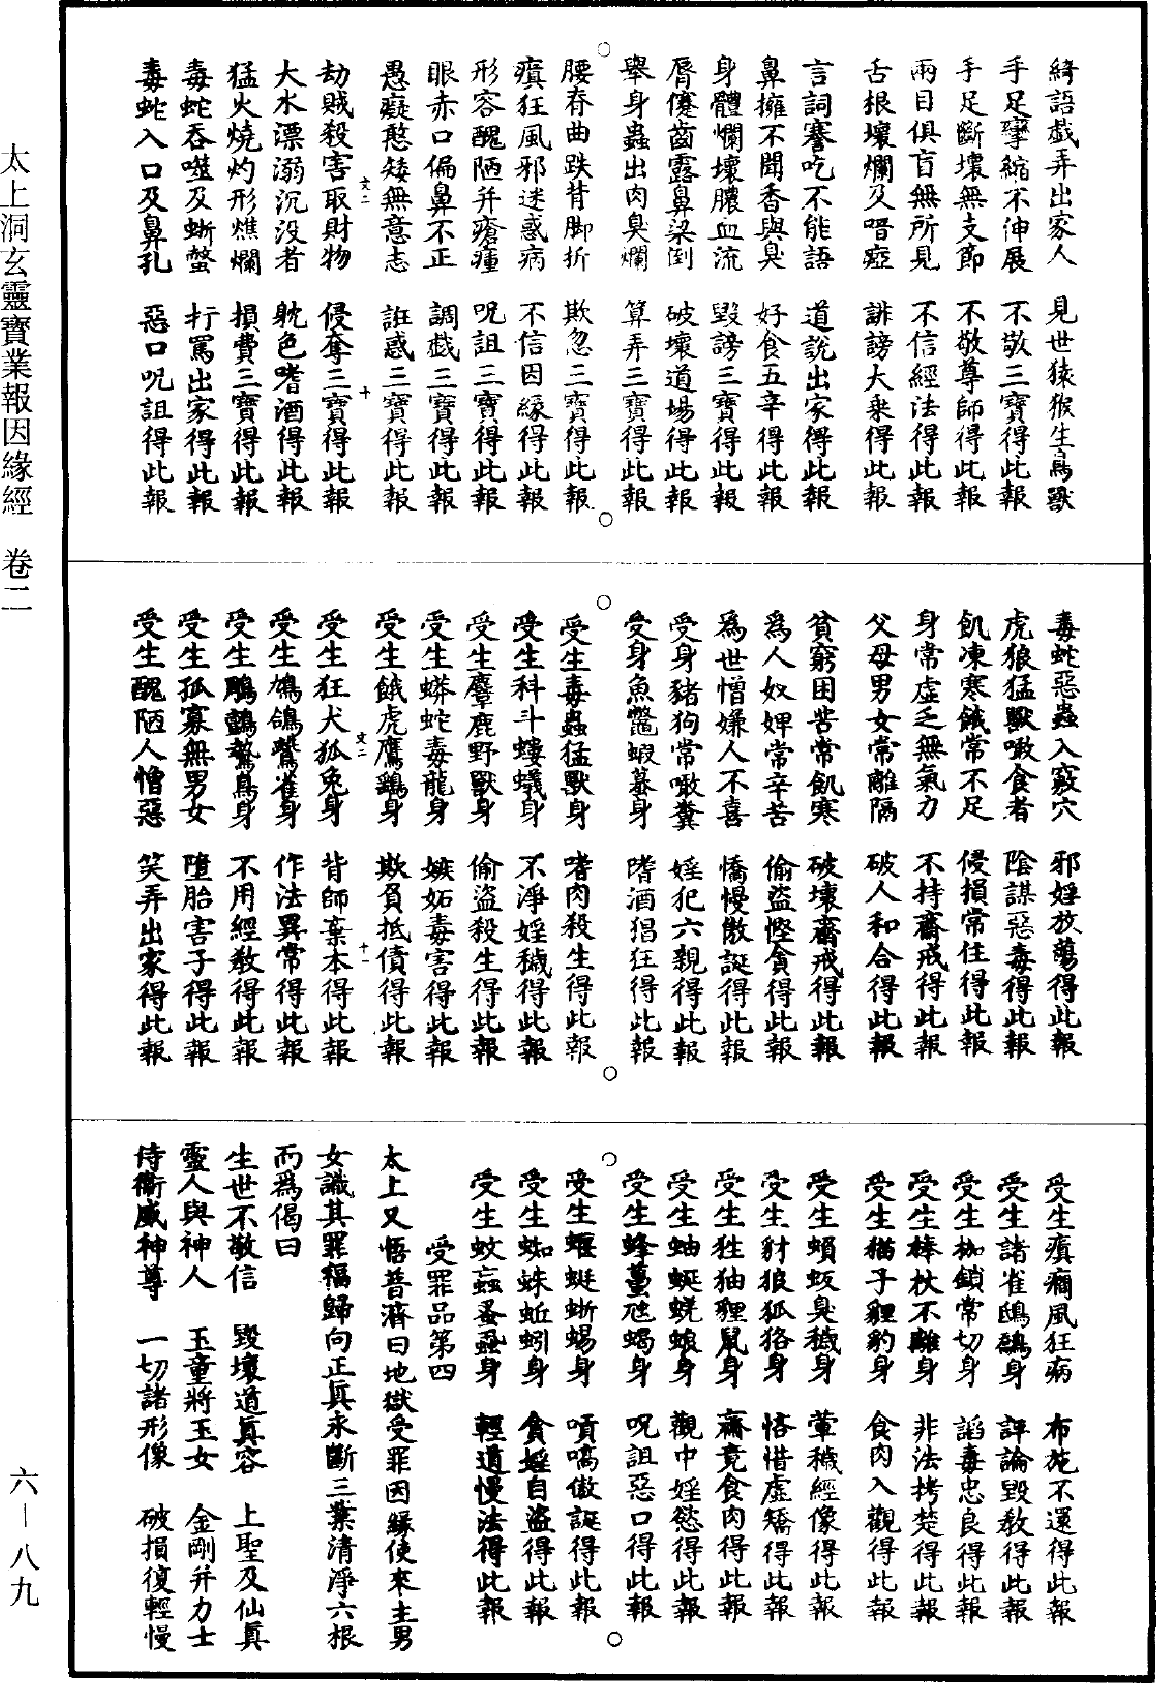 太上洞玄靈寶業報因緣經　卷二
六—八九
綺語戲弄出家人　見世猿猴生鳥獸
手足攣縮不伸展　不敬三寶得此報
手足斷壞無支節　不敬尊師得此報
兩目俱盲無所見　不信經法得此報
舌根壞爛及喑瘂　誹謗大乘得此報
言詞謇吃不能語　道說出家得此報
鼻擁不聞香與臭　好食五辛得此報
身體爛壞膿血流　毀謗三寶得此報
脣僂齒露鼻梁倒　破壞道場得此報
舉身蟲出肉臭爛　算弄三寶得此報
腰脊曲跌背脚折　欺忽三寶得此報
癲狂風邪迷惑病　不信因緣得此報
形容醜陋并瘡瘇　呪詛三寶得此報
眼赤口偏鼻不正　調戲三寶得此報
愚癡憨矮無意志　誑惑三寶得此報
文二　十
劫賊殺害取財物　侵奪三寶得此報
大水漂溺沉没者　躭色嗜酒得此報
猛火燒灼形燋爛　損費三寶得此報
毒蛇吞噬及蜥螫　打罵出家得此報
毒蛇入口及鼻孔　惡口呪詛得此報
毒蛇惡蟲入竅穴　邪婬放蕩得此報
虎狼猛獸噉食者　陰謀惡毒得此報
飢凍寒餓常不足　侵損常住得此報
身常虛乏無氣力　不持齋戒得此報
父母男女常離隔　破人和合得此報
貧窮困苦常飢寒　破壞齋戒得此報
爲人奴婢常辛苦　偷盜慳貪得此報
爲世憎嫌人不喜　憍慢傲誕得此報
受身豬狗常噉糞　婬犯六親得此報
受身魚鼈蝦蟇身　嗜酒猖狂得此報
受生毒蟲猛獸身　嗜肉殺生得此報
受生科斗螻蟻身　不淨婬穢得此報
受生麞鹿野獸身　偷盜殺生得此報
受生蟒蛇毒龍身　嫉妬毒害得此報
受生餓虎鷹鸇身　欺負抵債得此報
文二　十一
受生狂犬狐兔身　背師棄本得此報
受生鳩鴿鴛雀身　作法異常得此報
受生鵰鸇鷙鳥身　不用經教得此報
受生孤寡無男女　墮胎害子得此報
受生醜陋人憎惡　笑弄出家得此報
受生癲癇風狂病　布施不還得此報
受生諸雀鴟鷂身　評論毀教得此報
受生枷鎖常切身　謟毒忠良得此報
受生棒杖不離身　非法拷楚得此報
受生猫子貍豹身　食肉入觀得此報
受生蝜蚖臭穢身　葷穢經像得此報
受生豺狼狐狢身　悋惜虛矯得此報
受生狌狖貍鼠身　齋竟食肉得此報
受生蚰蜒蜣蜋身　觀中婬慾得此報
受生蜂蠆虺蝎身　呪詛惡口得此報
受生蝘蜓蜥蜴身　嗔嗃傲誕得此報
受生蜘蛛蚯蚓身　貪婬自盜得此報
受生蚊蝱蚤蝨身　輕道慢法得此報
受罪品第四
太上又悟普濟曰地獄受罪因緣使來生男
女識其罪福歸向正眞永斷三業清淨六根
而爲偈曰
生世不敬信　毀壞道眞容　上聖及仙眞
靈人與神人　玉童將玉女　金剛并力士
侍衞威神尊　一切諸形像　破損復輕慢